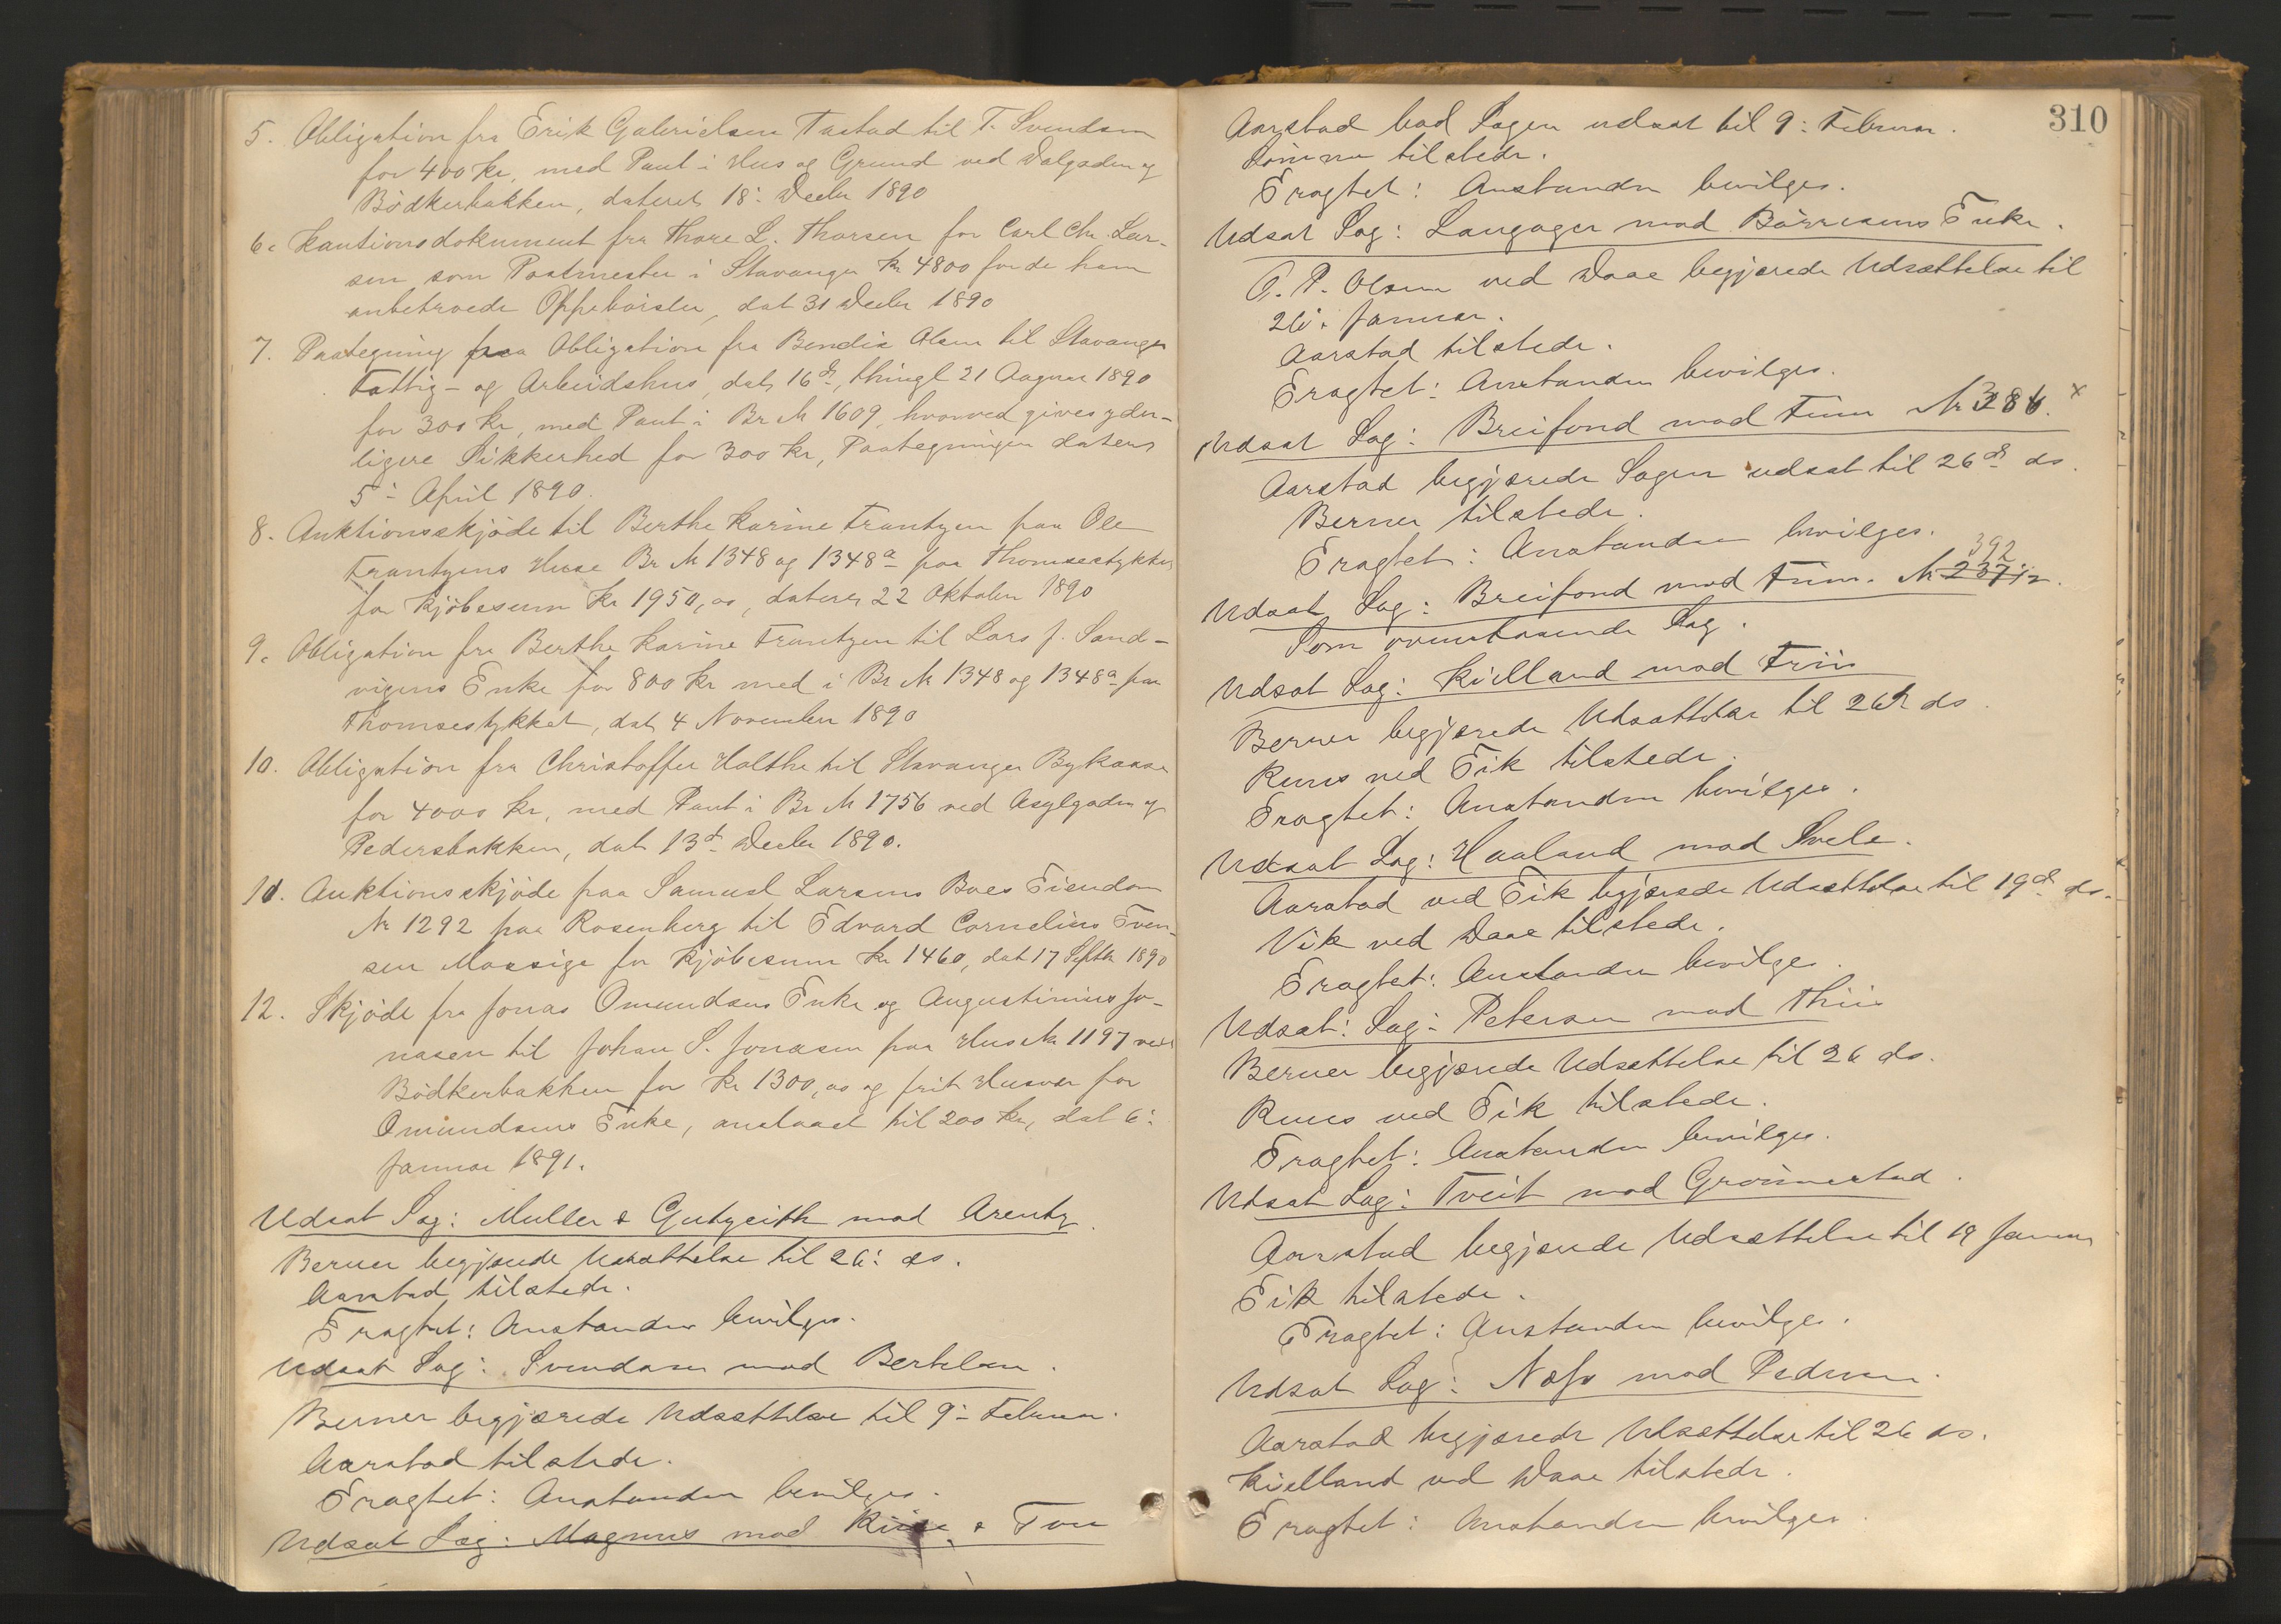 5. Obligation fra Erik Gabrielsen Tastad til T. Svendsen
for 400 Kr, med Pant i Hus og Grund ved Dalgaden og
Bödkerbakken, dateret 18: Decbr 1890
6. Kautionsdokument fra Thore L. Thorsen for Carl Chr. Lar-
sen som Postmester i Stavanger Kr 4800 for de ham
anbetroede Oppebörsler, dat 31 Decbr 1890
7. Paategning paa Obligation fra Bendix Olsen til Stavanger
Fattig- og Arbeidshus, dat 16d, thingl 21 August 1890
for 300 Kr, med Pant i Br № 1609, hvorved gives yder-
ligere Sikkerhed for 300 Kr, Paategningen dateret
5:- April 1890.
8. Auktionsskjöde til Berthe Karine Frantzen paa Ole
Frantzens Huse Br № 1348 og 1348a paa Thomsestykket
for Kjöbesum Kr 1950,00, dateret 22 Oktober 1890
9. Obligation fra Berthe Karine Frantzen til Lars J. Sand-
vigens Enke for 800 Kr med i Br № 1348 og 1348a paa
Thomsestykket, dat 4 November 1890
10. Obligation fra Christoffer Holthe til Stavanger Bykasse
for 4000 Kr, med Pant i Br № 1756 ved Asylgaden og
Pedersbakken, dat 13d Decbr 1890.
11. Auktionsskjöde paa Samuel Larsens Boes Eiendom
Nr 1292 paa Rosenberg til Edvard Cornelius Even-
sen Mossige for Kjöbesum Kr 1460, dat 17 Septbr 1890
12. Skjöde fra Jonas Omundsens Enke og Augustinius Jo-
nasen til Johan S. Jonasen paa Hus № 1197 ved
Bödkerbakken for Kr 1300,00 og frit Husvær for
Omundsens Enke, anslaaet til 200 Kr, dat 6:
Januar 1891.
Udsat Sag: Muller & Gutzeith mod Arentz.
Berner begjærede Udsættelse til 26: ds.
Aarstad tilstede.
Eragtet: Anstanden bevilges.
Udsat Sag: Svendsen mod Bertelsen.
Berner begjærede Udsættelse til 9:- Februar.
Aarstad tilstede.
Eragtet: Anstanden bevilges.
Udsat Sag: Magnus mod & Tou
310
Aarstad bad Sagen udsat til 9: Februar.
Lömme tilstede.
Eragtet: Anstanden bevilges.
Udsat Sag: Langager mod Börresens Enke.
O. P. Olsen ved Daae begjærede Udsættelse til
26: Januar.
Aarstad tilstede.
Eragtet: Anstanden bevilges.
Udsat Sag: Breifond mod Finn № 386. x
Aarstad begjærede Sagen udsat til 26d ds.
Berner tilstede.
Eragtet: Anstanden bevilges.
392
Udsat Sag: Breifond mod Finn. № 237½.
Som ovenstaaende Sag.
Udsat Sag: Kielland mod Friis
Berner begjærede Udsættelse til 26d ds.
ved Eik tilstede.
Eragtet: Anstanden bevilges.
Udsat Sag: Haaland mod Svele.
Aarstad ved Eik begjærede Udsættelse til 19d ds.
Vik ved Daae tilstede.
Eragtet: Anstanden bevilges.
Udsat: Sag: Petersen mod Thiis
Berner begjærede Udsættelse til 26 ds.
ved Eik tilstede.
Eragtet: Anstanden bevilges.
Udsat Sag: Tveit mod Grönnestad.
Aarstad begjærede Udsættelse til 19 Januar
Eik tilstede.
Eragtet: Anstanden bevilges.
Udsat Sag: Næss mod Pedersen.
Aarstad begjærede Udsættelse til 26 ds.
Kielland ved Daae tilstede.
Eragtet: Anstanden bevilges.